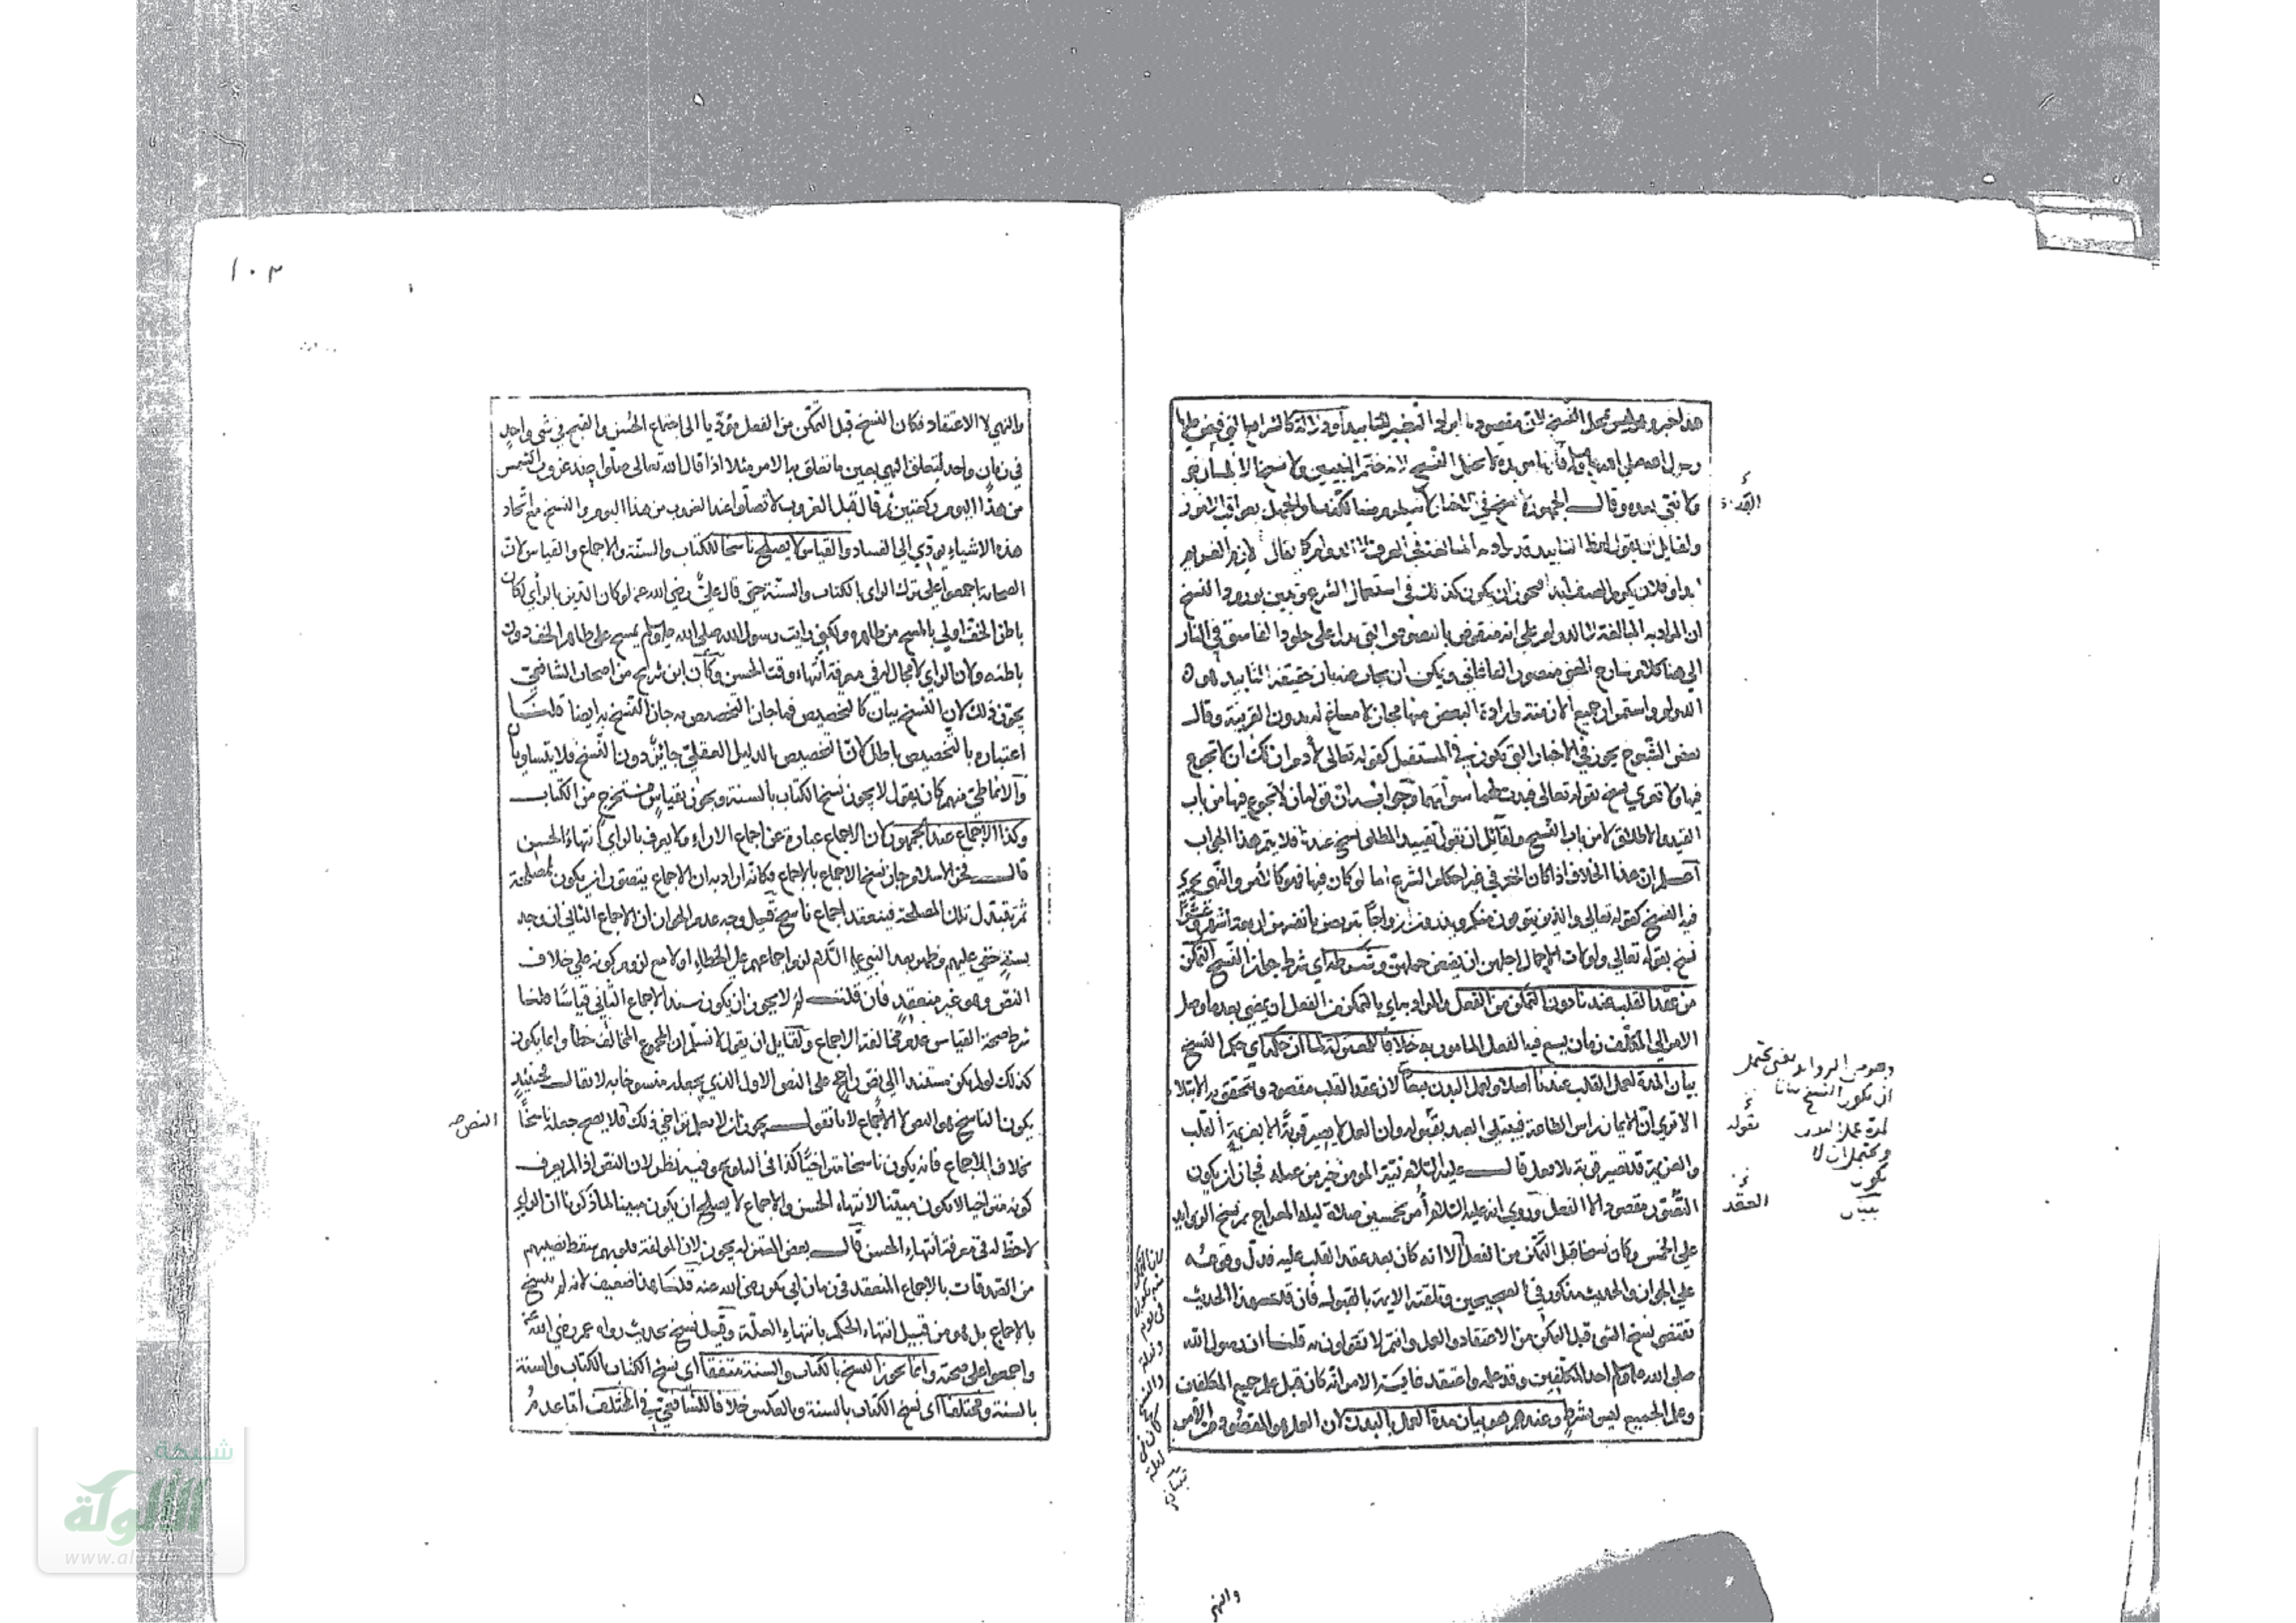 هذا خبر وهو ليس محل النسخ لان مقصودنا ايراد النظير للتابيد أو دلالة كالشرايع التي قبض عليها
رسول الله صلى الله عليه وسلم فانها مؤبدة لا تحتمل النسخ لانه ختم النبيين ولا نسخ الا بلسان نبي
ولا نبي بعده وقال الجمهور لا نسخ في الاخبار
ولقايل ان يقول لفظ التابيد قد يراد به المبالغة في العرف لا الدوام كما يقال لازم الغريم
ابدا وفلان يكرم الضيف ابدا فيجوز ان يكون كذلك في استعمال الشرع وتبين بورود النسخ
ان المراد به المبالغة لا الدوام على انه منقوض بالنصوص التي تدل على خلود الفاسق في النار
الى هنا كلام شارح المغني منصور القاءاني ويمكن ان يجاب عنه بان حقيقة التابيد هو
الدوام واستمرار جميع الازمنة وارادة البعض منها مجاز لا مساغ له بدون القرينة وقال
بعض الشيوخ يجوز في الاخبار التي تكون في المستقبل كقوله تعالى لآدم ان لك ان لا تجوع
فيها ولا تعرى نسخ بقوله تعالى فبدت لهما سوآتهما وجوابه ان قوله ان لا تجوع فيها من باب
القيد والاطلاق لا من باب النسخ ولقائل ان يقول تقييد المطلق نسخ عندنا فلا يتم هذا الجواب
اعلم ان هذا الخلاف اذا كان الخبر في غير احكام الشرع اما لو كان فيها فهو كالأمر والنهي يجري
فيه النسخ كقوله تعالى والذين يتوفون منكم ويذرون ازواجا يتربصن بانفسهن اربعة اشهر وعشرا
نسخ بقوله تعالى واولات الاحمال اجلهن ان يضعن حملهن وشرطه اي شرط جواز النسخ التمكن
من عقد القلب عندنا دون التمكن من الفعل والمراد به اي بالتمكن من الفعل ان يمضي بعدما وصل
الامر الى المكلف زمان يسع فيه الفعل المامور به خلافا للمعتزلة لما ان حكمه اي حكم النسخ
بيان المدة لعمل القلب عندنا اصلا ولعمل البدن تبعا لان عقد القلب مقصود ويتحقق به الابتلا
الا ترى ان الايمان راس الطاعة فيبتلى العبد بقبوله وان العمل لا يصير قربة الا بعزيمة القلب
والعزيمة قد تصير قربة بلا فعل قال عليه السلام نية المومن خير من عمله فجاز ان يكون
مقصودا لا الفعل وروي انه عليه السلام أمر بخمسين صلاة ليلة المعراج ثم نسخ الزوايد
على الخمس وكان نسخا قبل التمكن من الفعل الا انه كان بعد عقد القلب عليه فدل وقوعه
على الجواز والحديث مذكور في الصحيحين وتلقته الامة بالقبول فان قلت هذا الحديث
تقتضي نسخ الشي قبل التمكن من الاعتقاد والعمل وانتم لا تقولون به قلنا ان رسول الله
صلى الله عليه وسلم احد المكلفين وقد علم واعتقد غاية الامر انه كان قبل علم جميع المكلفين
وعلم الجميع ليس بشرط وعندهم هو بيان مدة العمل بالبدن لان العمل هو المقصود من الامر
والنهي
العقد
١٠٢
والنهي لا الاعتقاد فكان النسخ قبل التمكن من الفعل مؤديا الى اجتماع الحسن والقبح في شي واحد
في زمان واحد لتعلق النهي بعين ما تعلق به الامر مثلا اذا قال الله تعالى صلوا عند غروب الشمس
من هذا اليوم ركعتين ثم قال قبل الغروب لا تصلوا عند الغروب من هذا اليوم والنسخ مع اتحاد
هذه الاشياء يودي الى الفساد والقياس لا يصلح ناسخا للكتاب والسنة والاجماع والقياس لان
الصحابة اجمعوا على ترك الراي بالكتاب والسنة حتى قال علي رضي الله عنه لو كان الدين بالرأي لكان
باطن الخف اولى بالمسح من ظاهره ولكني رايت رسول الله صلى الله عليه وسلم يمسح على ظاهر الخف دون
باطنه ولان الراي لا مجال له في معرفة انتهاء وقت الحسن وكان ابن شريح من اصحاب الشافعي
يجوز ذلك لان النسخ بيان كالتخصيص فما جاز التخصيص به جاز النسخ به ايضا قلنا
اعتباره بالتخصيص باطل لان التخصيص بالدليل العقلي جائز دون النسخ فلا يتساويان
والانماطي منهم كان يقول لا يجوز نسخ الكتاب بالسنة ويجوز بقياس مستخرج من الكتاب
وكذا الاجماع عند الجمهور لان الاجماع عبارة عن اجماع الاراء ولا يعرف بالراي انتهاء الحسن
قال فخر الاسلام جاز نسخ الاجماع بالاجماع فكانه اراد به ان الاجماع يتصور ان يكون لمصلحة
ثم تتبدل تلك المصلحة فينعقد اجماع ناسخ قيل وجه عدم الجواز ان الاجماع الثاني ان وجد
بسند خفي عليهم وظهر بعد النبي عليه السلام لزم اجماعهم على الخطاء اولا مع لزوم كونه على خلاف
النص وهو غير منعقد فان قلت لم لا يجوز ان يكون سند الاجماع الثاني قياسا قلنا
شرط صحة القياس عدم مخالفة الاجماع ولقايل ان يقول لا نسلم ان المجموع المخالف خطأ وانما يكون
كذلك لو لم يكن مستندا الى نص راجح على النص الاول الذي يجعله منسوخا به لا يقال فحينئذ
يكون الناسخ هو النص لا الاجماع لانا نقول يجوز ان لا يعلم تراخي ذلك فلا يصح جعله ناسخا
بخلاف الاجماع فانه يكون ناسخا متراخيا كذا في التلويح وفيه نظر لان النص اذا لم يعرف
كونه متراخيا لا يكون مبينا لانتهاء الحسن والاجماع لا يصلح ان يكون مبينا لما ذكرنا ان الراي
لا حظ له في معرفة انتهاء الحسن قال بعض المعتزلة يجوز لان المولفة قلوبهم سقط نصيبهم
من الصدقات بالاجماع المنعقد في زمان ابي بكر رضي الله عنه قلنا هذا ضعيف لانه لم ينسخ
بالاجماع بل هو من قبيل انتهاء الحكم بانتهاء العلة وقيل نسخ بحديث رواه عمر رضي الله عنه
واجمعوا على صحته وانما يجوز النسخ بالكتاب والسنة متفقا اي نسخ الكتاب بالكتاب والسنة
بالسنة ومختلفا اي نسخ الكتاب بالسنة وبالعكس خلافا للشافعي في المختلف اما عدم
النص
شبكة
الألوكة